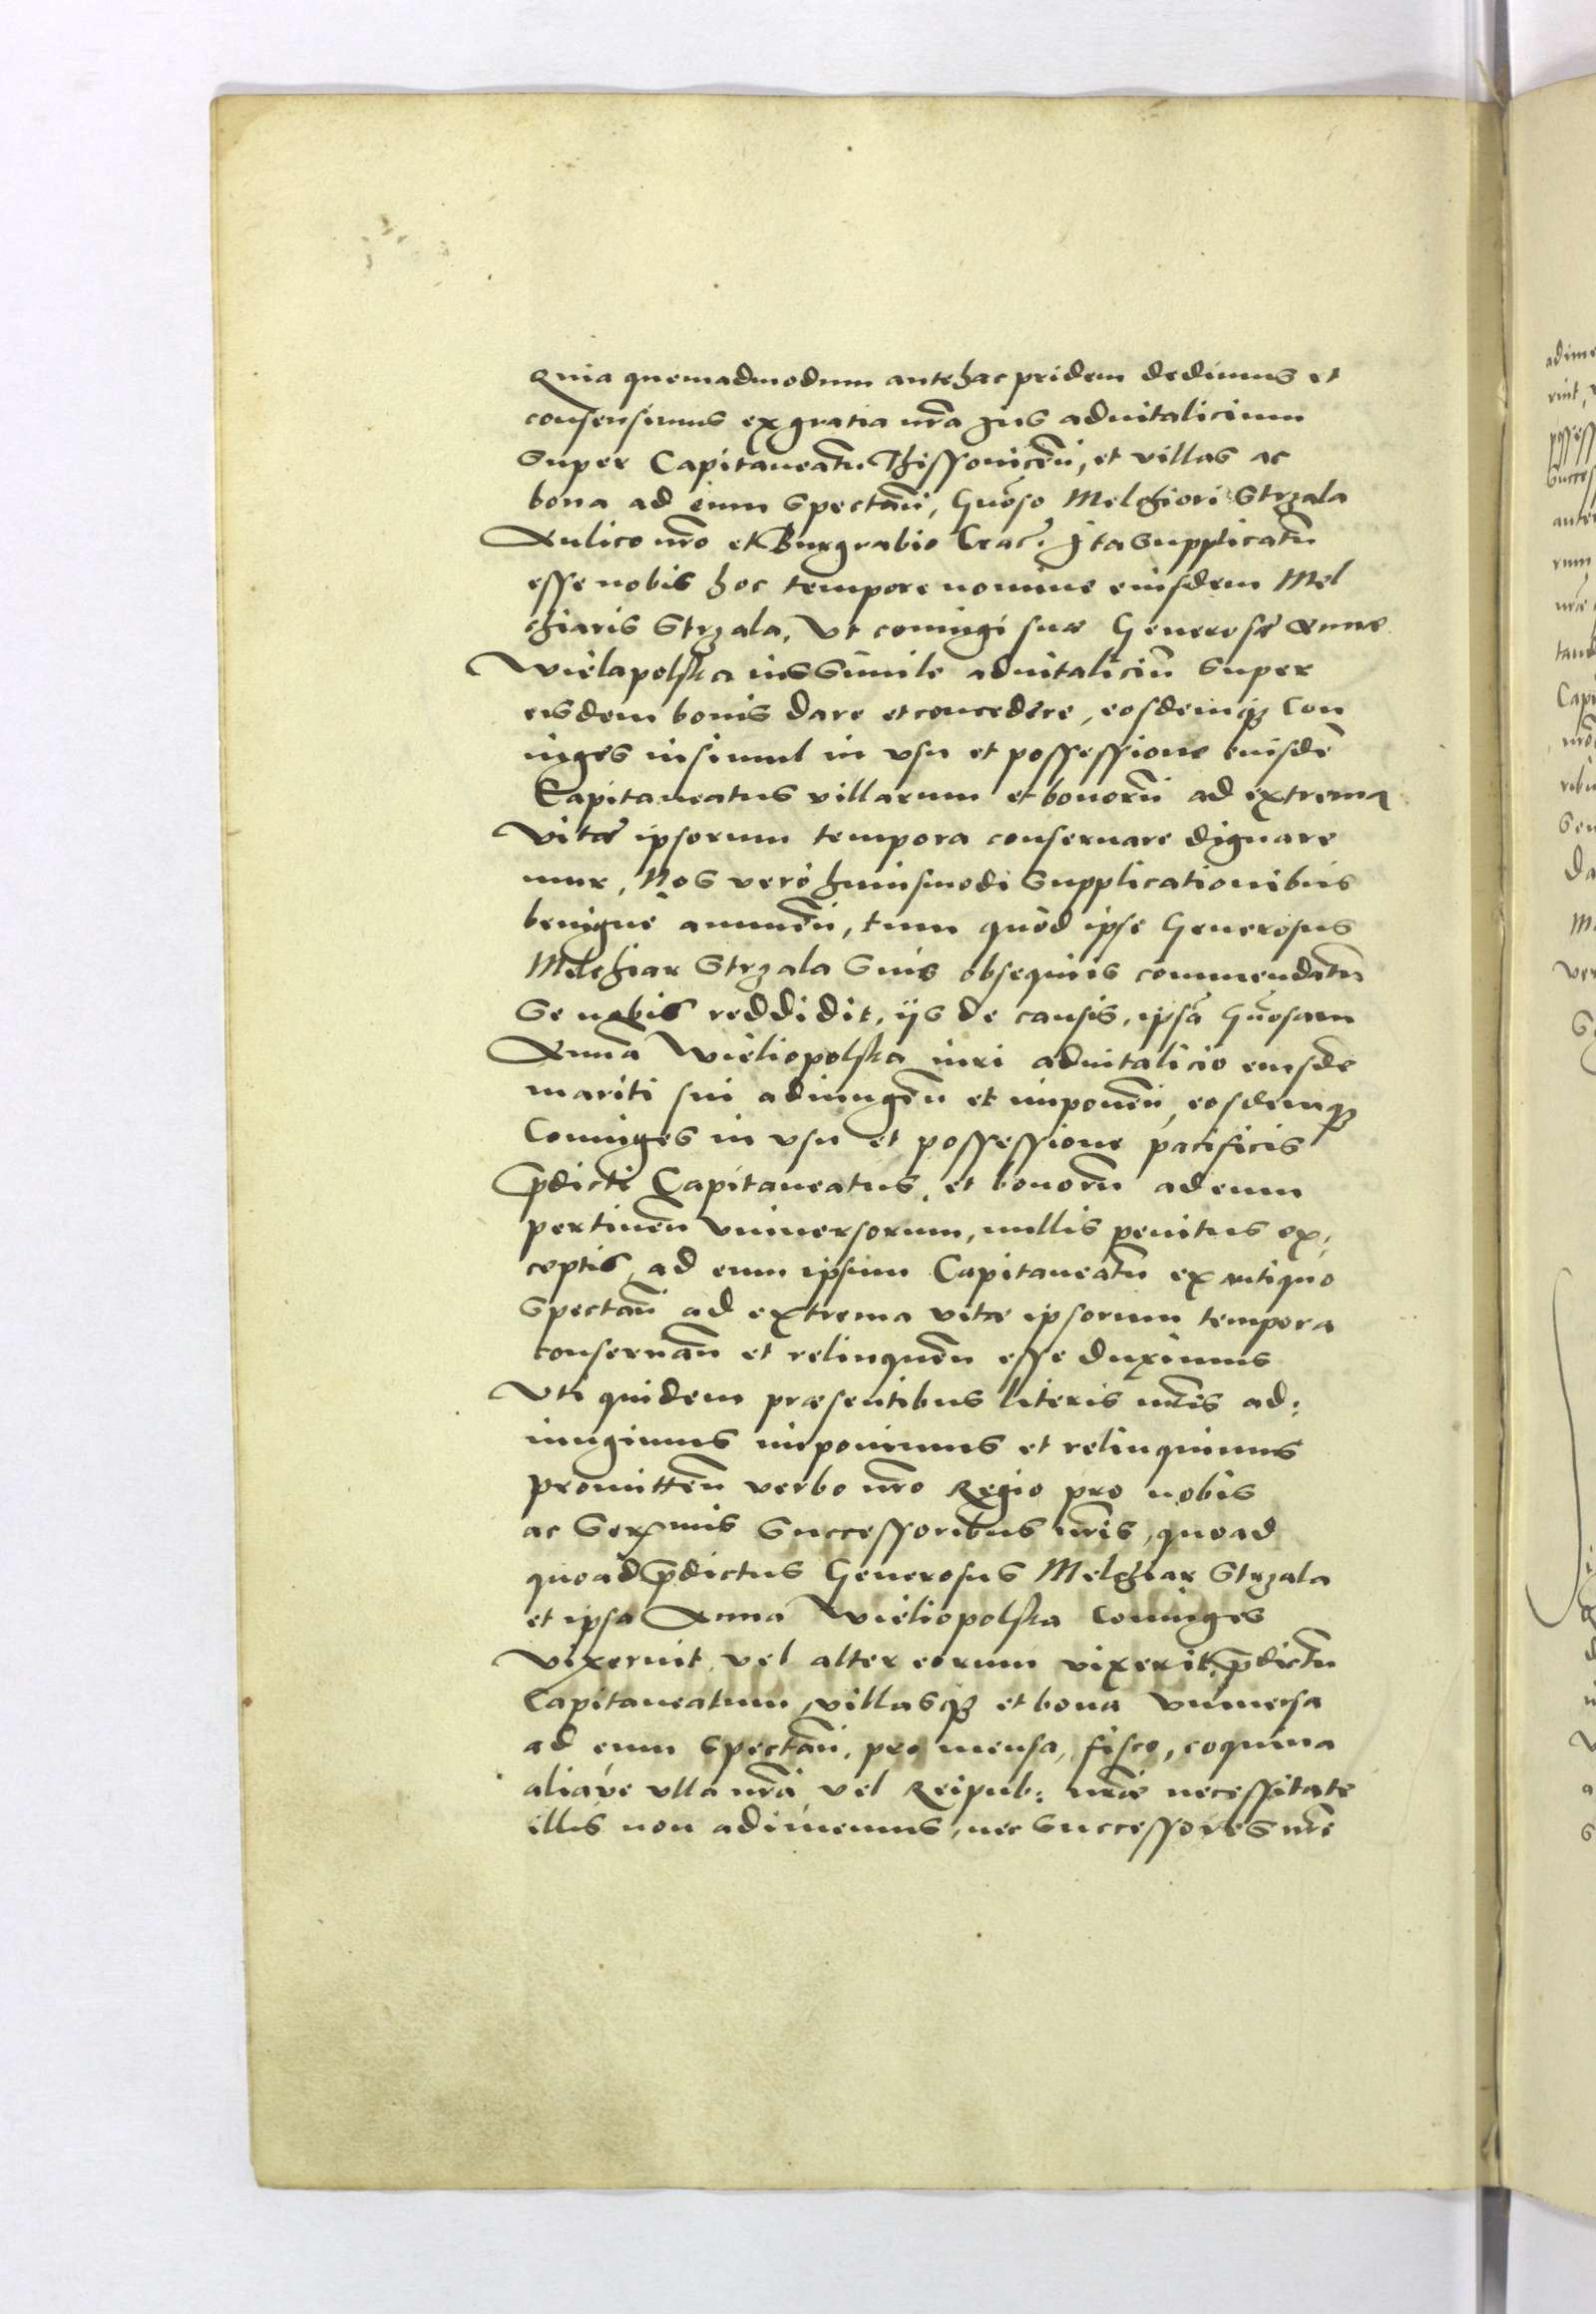 Quia quemadmodum antehac pridem dedimus et
consensimus ex gratia nr̃a Jus aduitalicium
Super Capitaneatu Thissouicen̄, et villas ac
bona ad eum Spectan̄, Gnõso Melchiori Strzala
Aulico nr̃o et Burgrabio Crac̃. Ita supplicatũ
esse nobis hoc tempore nomine eiusdem Mel
chiaris Strzala, Vt coniugi suæ Generosæ Annæ
Wielapolska ius Simile aduitaliciũ Super
eisdem bonis dare et concedere, eosdemq3 Con
iuges insimul in vsu et possessione eiusdẽ
Capitaneatus villarum et bonorũ ad extrema
Vitæ ipsorum tempora conseruare dignare
mur, Nos verò huiusmodi Supplicationibus
benignè annuen̄, tum quòd ipse Generosus
Melchiar Strzala Suis obsequiis commendatũ
Se nobis reddidit, ijs de causis, ipsã Gnõsam
Annã Wieliopolska iuri aduitalicio eiusdẽ
mariti sui adiungen̄ et imponen̄, eosdemq3
Coniuges in vsu et possessione pacificis
p̃dicti Capitaneatus, et bonorũ ad eum
pertinen̄ Vniuersorum, nullis penitus ex,
ceptis, ad eum ipsum Capitaneatũ ex antiquo
Spectan̄ ad extrema vitæ ipsorum tempora
conseruan̄ et relinquen̄ esse duximus
Vti quidem præsentibus literis nr̃is ad:
iungimus imponimus et relinquimus
promitten̄ verbo nr̃o Regio pro nobis
ac Serm̃is Successoribus nr̃is, quoad
quoad p̃dictus Generosus Melchiar Strzala
et ipsa Anna Wieliopolska Coniuges
Vixerint, vel alter eorum vixerit, p̃dictũ
Capitaneatum, villasq3 et bona Vniuersa
ad eum Spectan̄, pro mensa, fisco, coquina
aliáve vlla nr̃a, vel Reipub: nr̃æ necessitate
illis non adimemus, nec Successores nr̃i